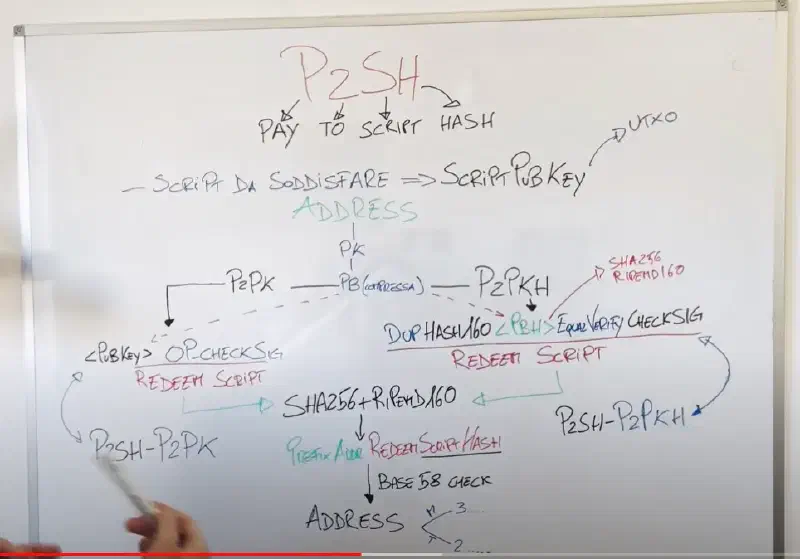 P2SH
PAY TO SCRIPT HASH
UTXO
- SCRIPT DA SODDISFARE => SCRIPTPUBKEY
ADDRESS
PK
P2PK PB (COMPRESSA) P2PKH
SHA256
RIPEMD160
<PUBKEY> OP_CHECKSIG
REDEEM SCRIPT
DUP HASH160 <PBH> EQUALVERIFY CHECKSIG
REDEEM SCRIPT
SHA256+RIPEMD160
P2SH-P2PK
P2SH-P2PKH
PREFIX ADDR REDEEM SCRIPT HASH
BASE 58 CHECK
ADDRESS
3.....
2.....